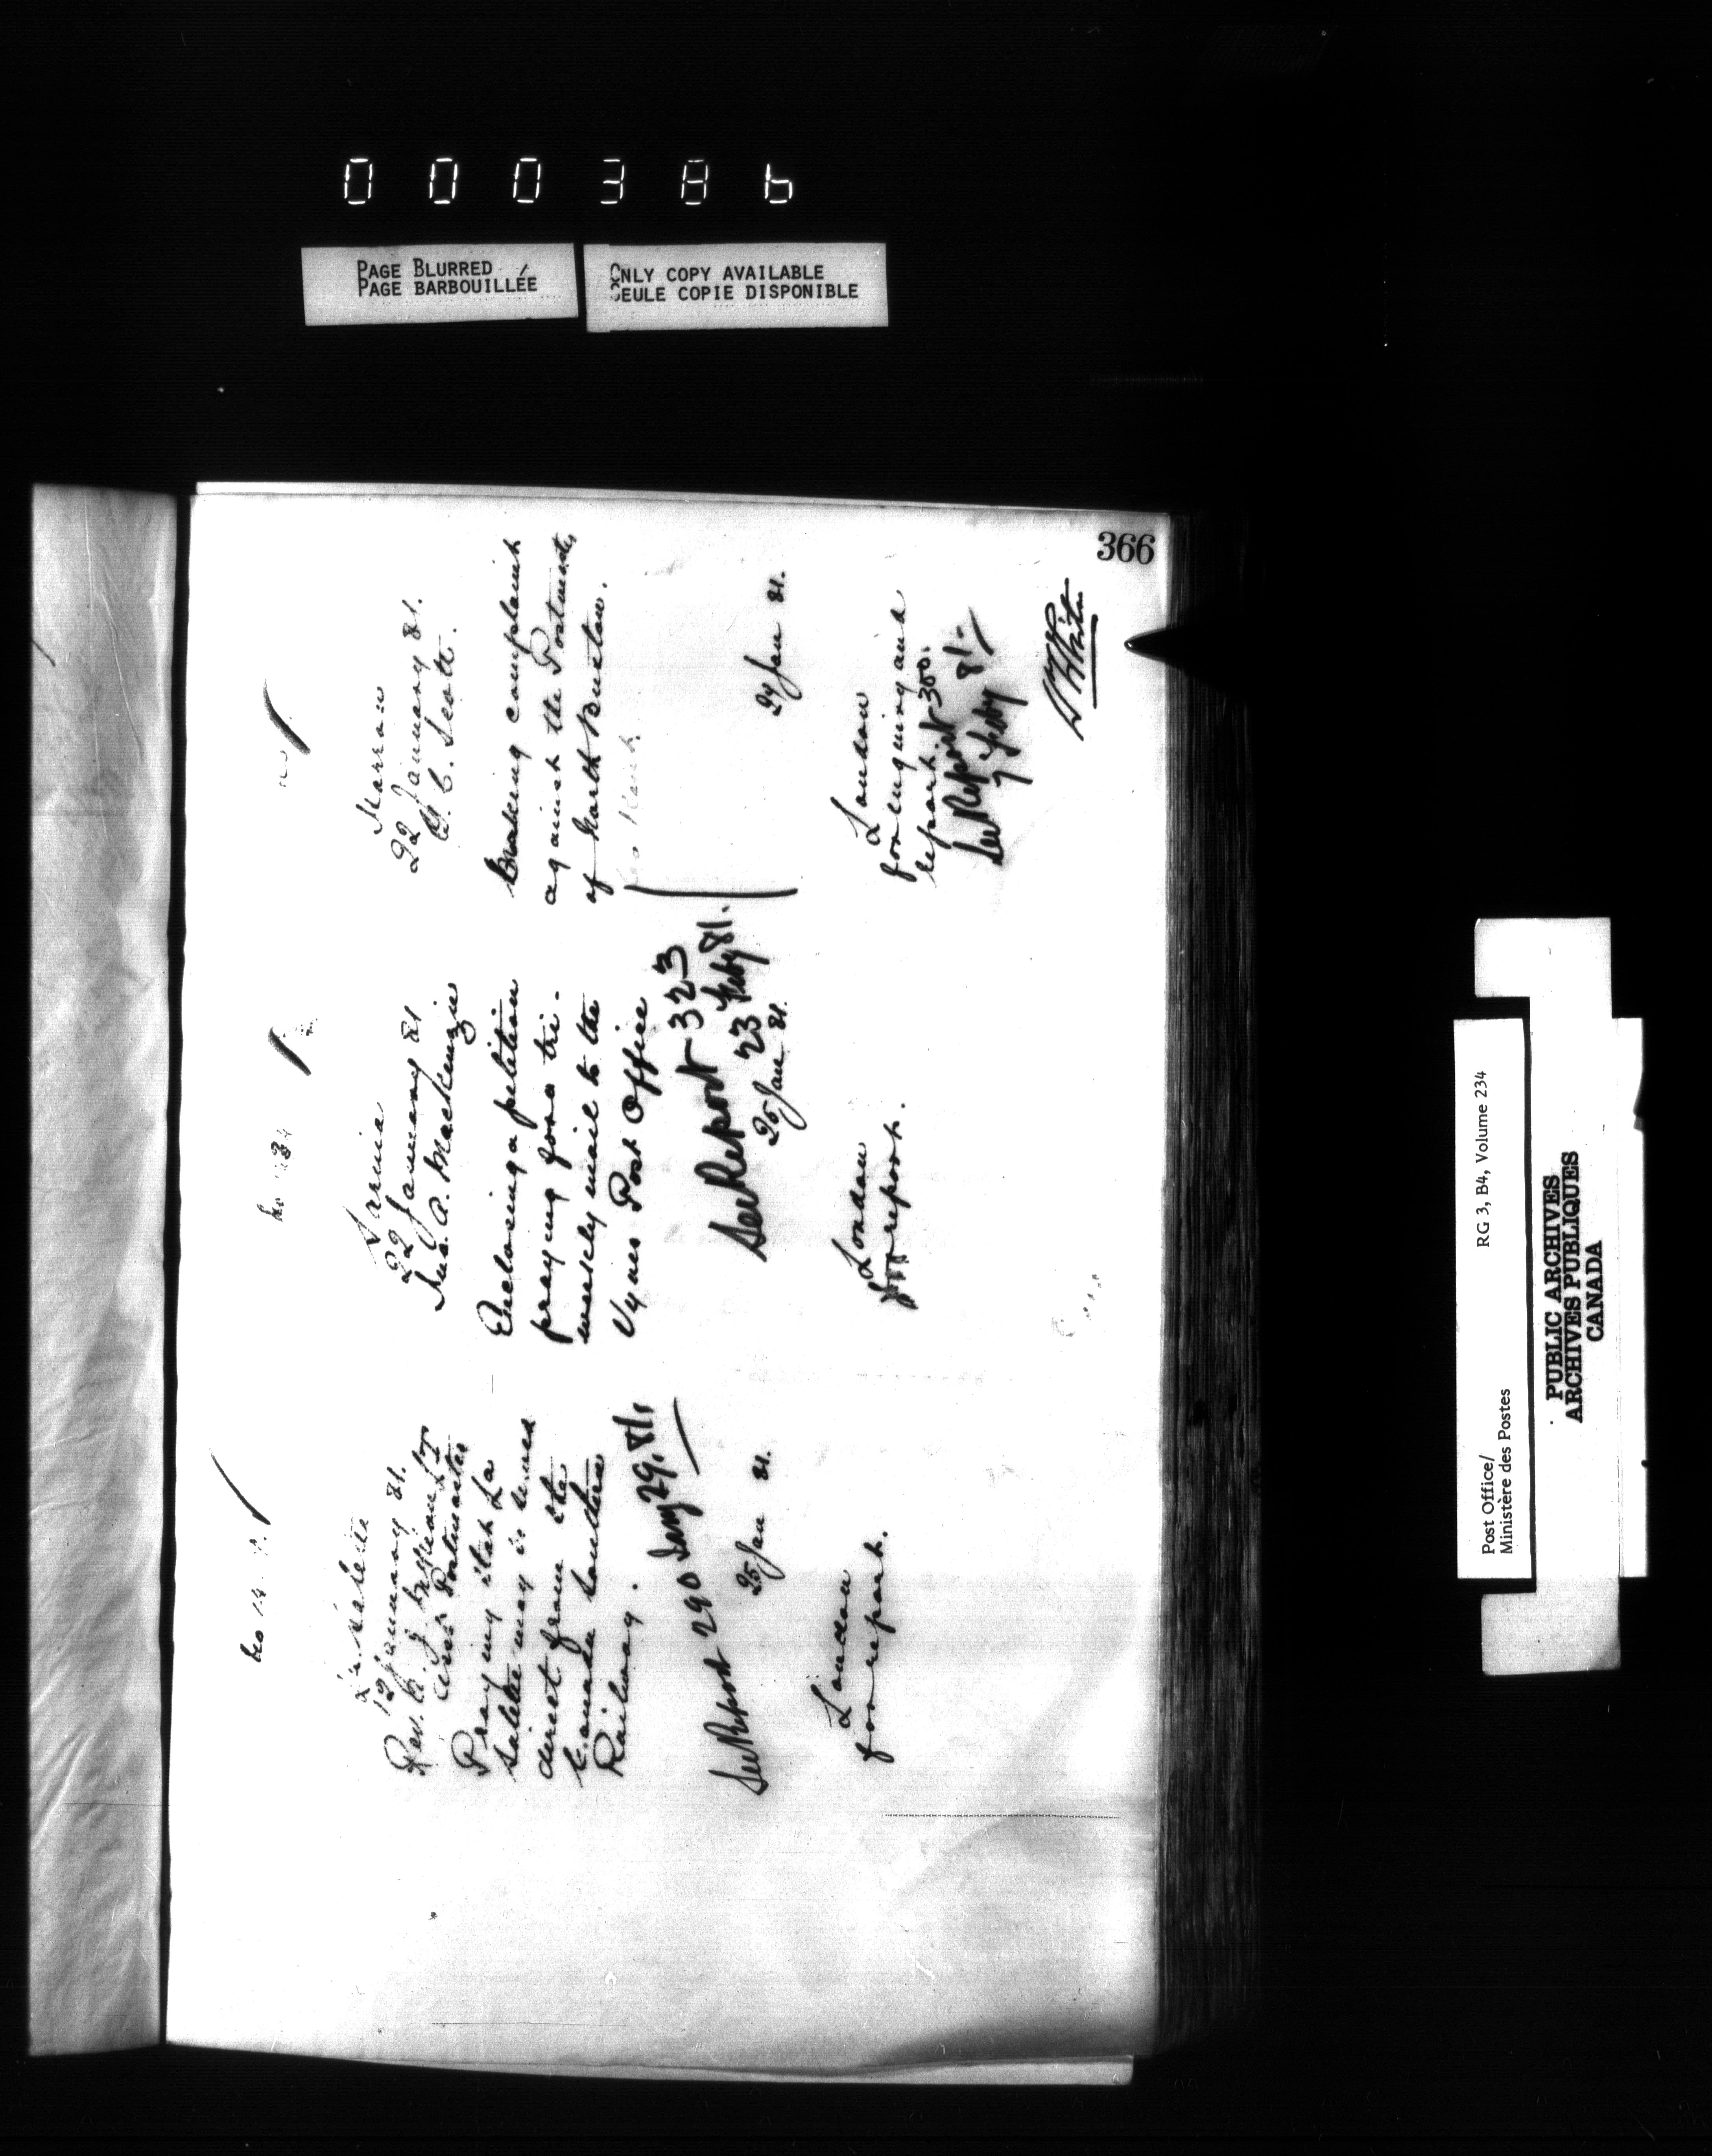 000386
PAGE BLURRED
PAGE BARBOUILLÉE
ONLY COPY AVAILABLE
SEULE COPIE DISPONIBLE
366
12 January 81.
Rev.
Asst Postmaster
Praying that La
Salette may be served
direct from the
Canada Southern
Railway.
See Report 290 Jany 29. 81
25 Jan 81.
London
for report.
Sarnia
22 January 81
A. Mackenzie
Enclosing a petition
praying for a tri-
weekly mail to the
Vyner Post Office
See Report 323
23 Feby 81.
25 Jan 81.
London
for report.
22 January 81.
C. Scott.
Making complaint
against the Postmaster
of North Bruce
24 Jan 81.
London
for enquiring and
report 300.
See Report
7 Feby 81.
White
Post Office/
Ministère des Postes
RG 3, B4, Volume 234
PUBLIC ARCHIVES
ARCHIVES PUBLIQUES
CANADA